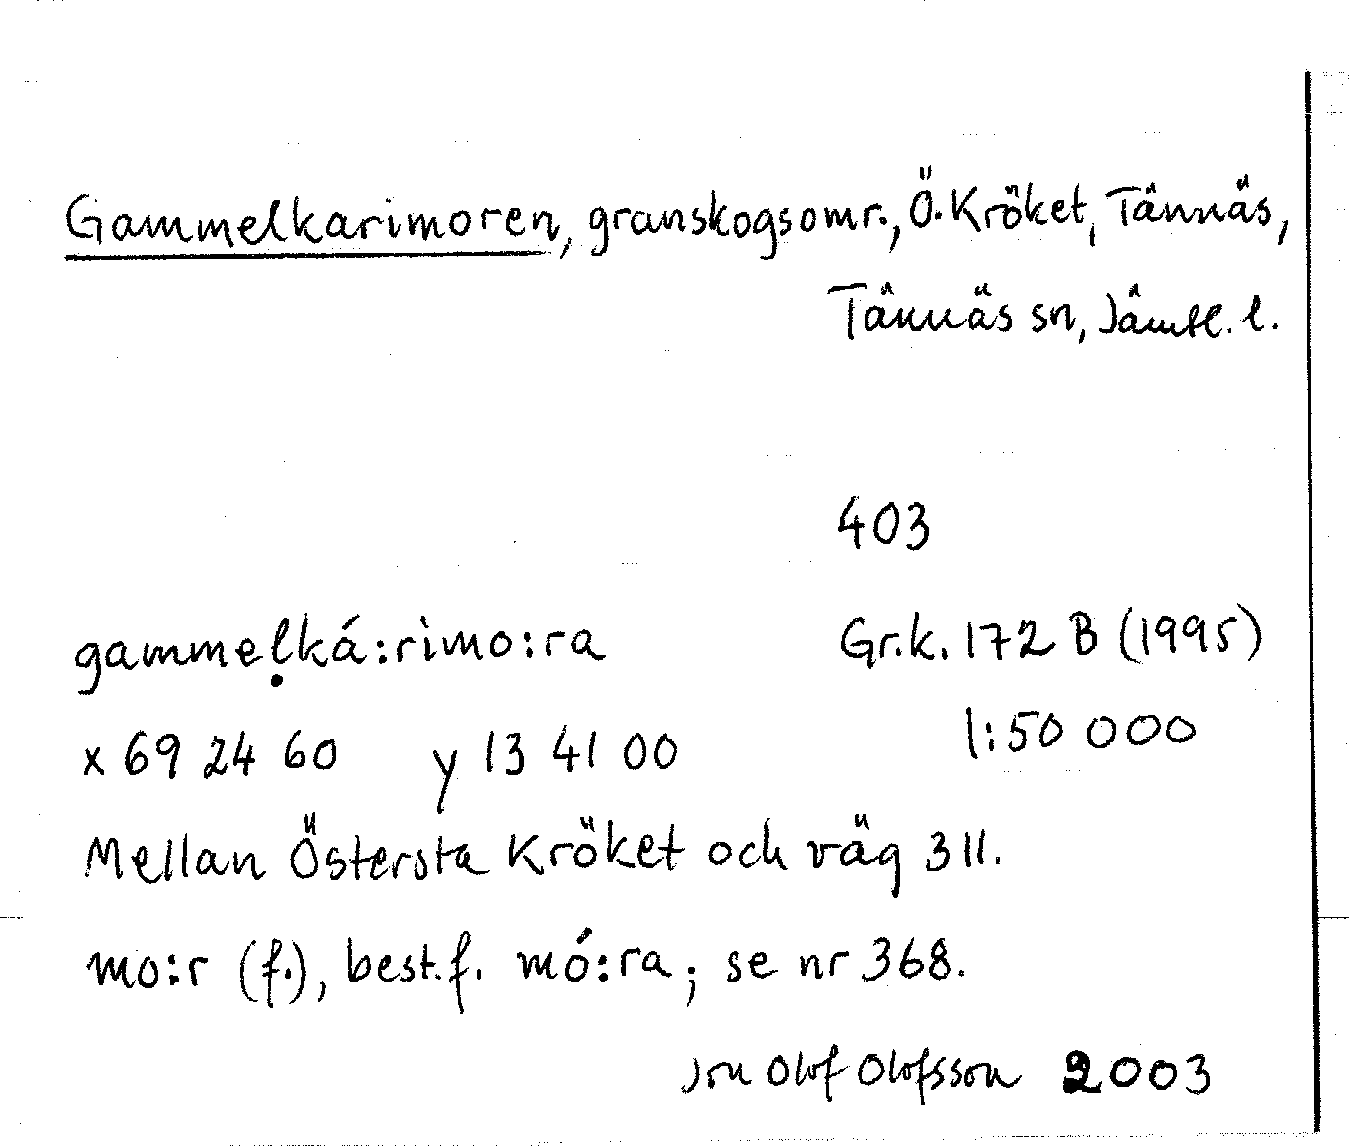 Gammelkarimoren, granskogsomr., Ö. Kröket, Tännäs,
Tännäs sn, Jämtl. l.
403
gammeḷká:rimo:ra
Gr.k. 172 B (1995)
x 69 24 60 y 13 41 00
1:50 000
Mellan Östersta Kröket och väg 311.
mo:r (f.), best.f. mó:ra; se nr 368.
Jon Olof Olofsson 2003